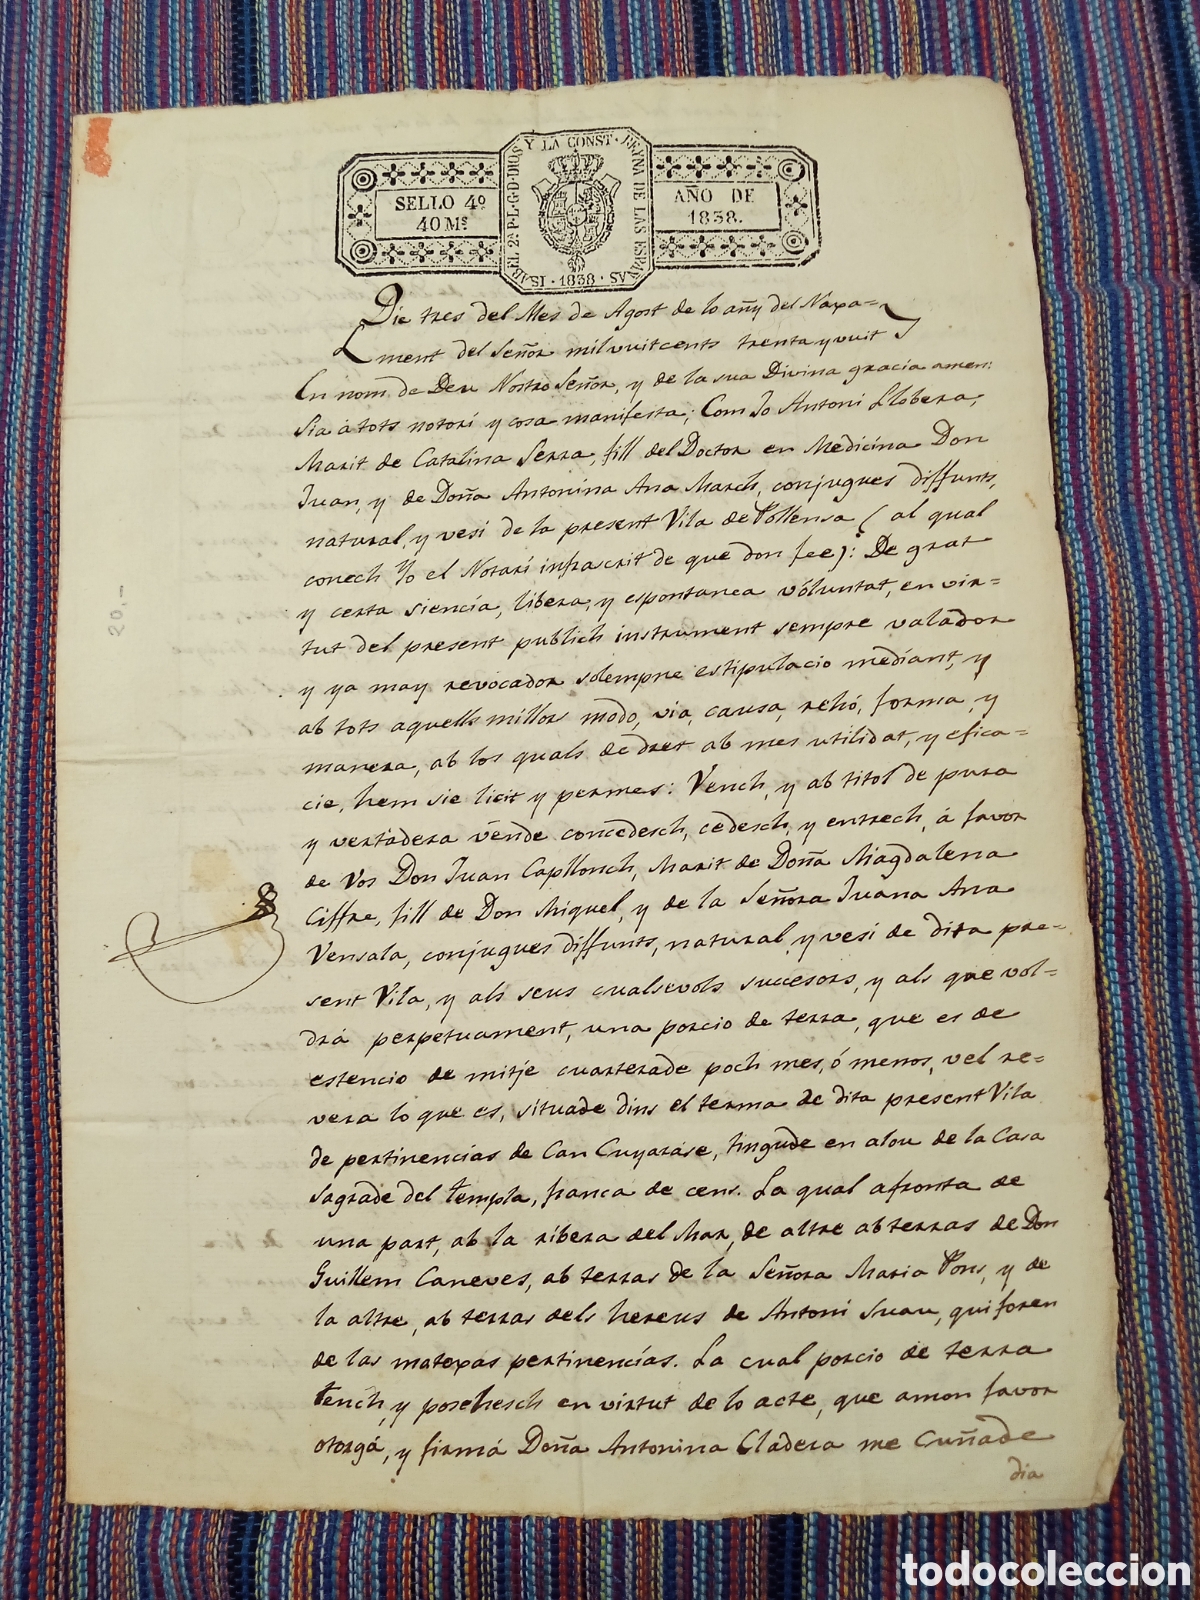 ISABEL 2ª P. L. G. D. DIOS Y LA CONST. REYNA DE LAS ESPAÑAS
SELLO 4º
40 Mˢ
AÑO DE
1838.
· 1838 ·
Die tres del Mes de Agost de lo añy del Naxa=
ment del Señor mil vuitcents trenta y vuit
En nom de Deu Nostro Señor, y de la sua Divina gracia amen:
Sia á tots notori y cosa manifesta; Com Jo Antoni Llobera,
Marit de Catalina Serra, fill del Doctor en Medicina Don
Juan, y de Doña Antonina Ana March, conjugues diffunts,
natural, y vesi de la present Vila de Pollensa (al qual
conech Yo el Notari infrascrit de que don fee): De grat
y certa siencia, libera, y espontanea vóluntat, en vir=
tut del present publich instrument sempre valador
y ya may revocador solempne estipulacio mediant, y
ab tots aquells millors modo, via, causa, rehó, forma, y
manera, ab los quals de dret ab mes utilidat, y efica=
cie, hem sie licit y permes: Vench, y ab titol de pura
y vertadera vende concedesch, cedesch, y entrech, á favor
de Vos Don Juan Capllonch, Marit de Doña Magdalena
Ciffre, fill de Don Miquel, y de la Señora Juana Ana
Vensala, conjugues diffunts, natural, y vesi de dita pre=
sent Vila, y als seus cualsevols succesors, y als que vol=
drá perpetuament, una porcio de terra, que es de
estencio de mitje cuarterade poch mes, ó menos, vel re=
vera lo que es, situade dins el terma de dita present Vila
de pertinencias de Can Cuyarase, tingude en alou de la Casa
Sagrade del templa, franca de cens. La qual afronta de
una part, ab la ribera del Mar, de altre ab terras de Don
Guillem Caneves, ab terras de la Señora Maria Pons, y de
la altre, ab terras dels hereus de Antoni Suau, qui foren
de las matexas pertinencias. La cual porcio de terra
tench, y posehesch en virtut de lo acte, que amon favor
otorgá, y firmá Doña Antonina Cladera me Cuñade
dia
20,-
todocoleccion